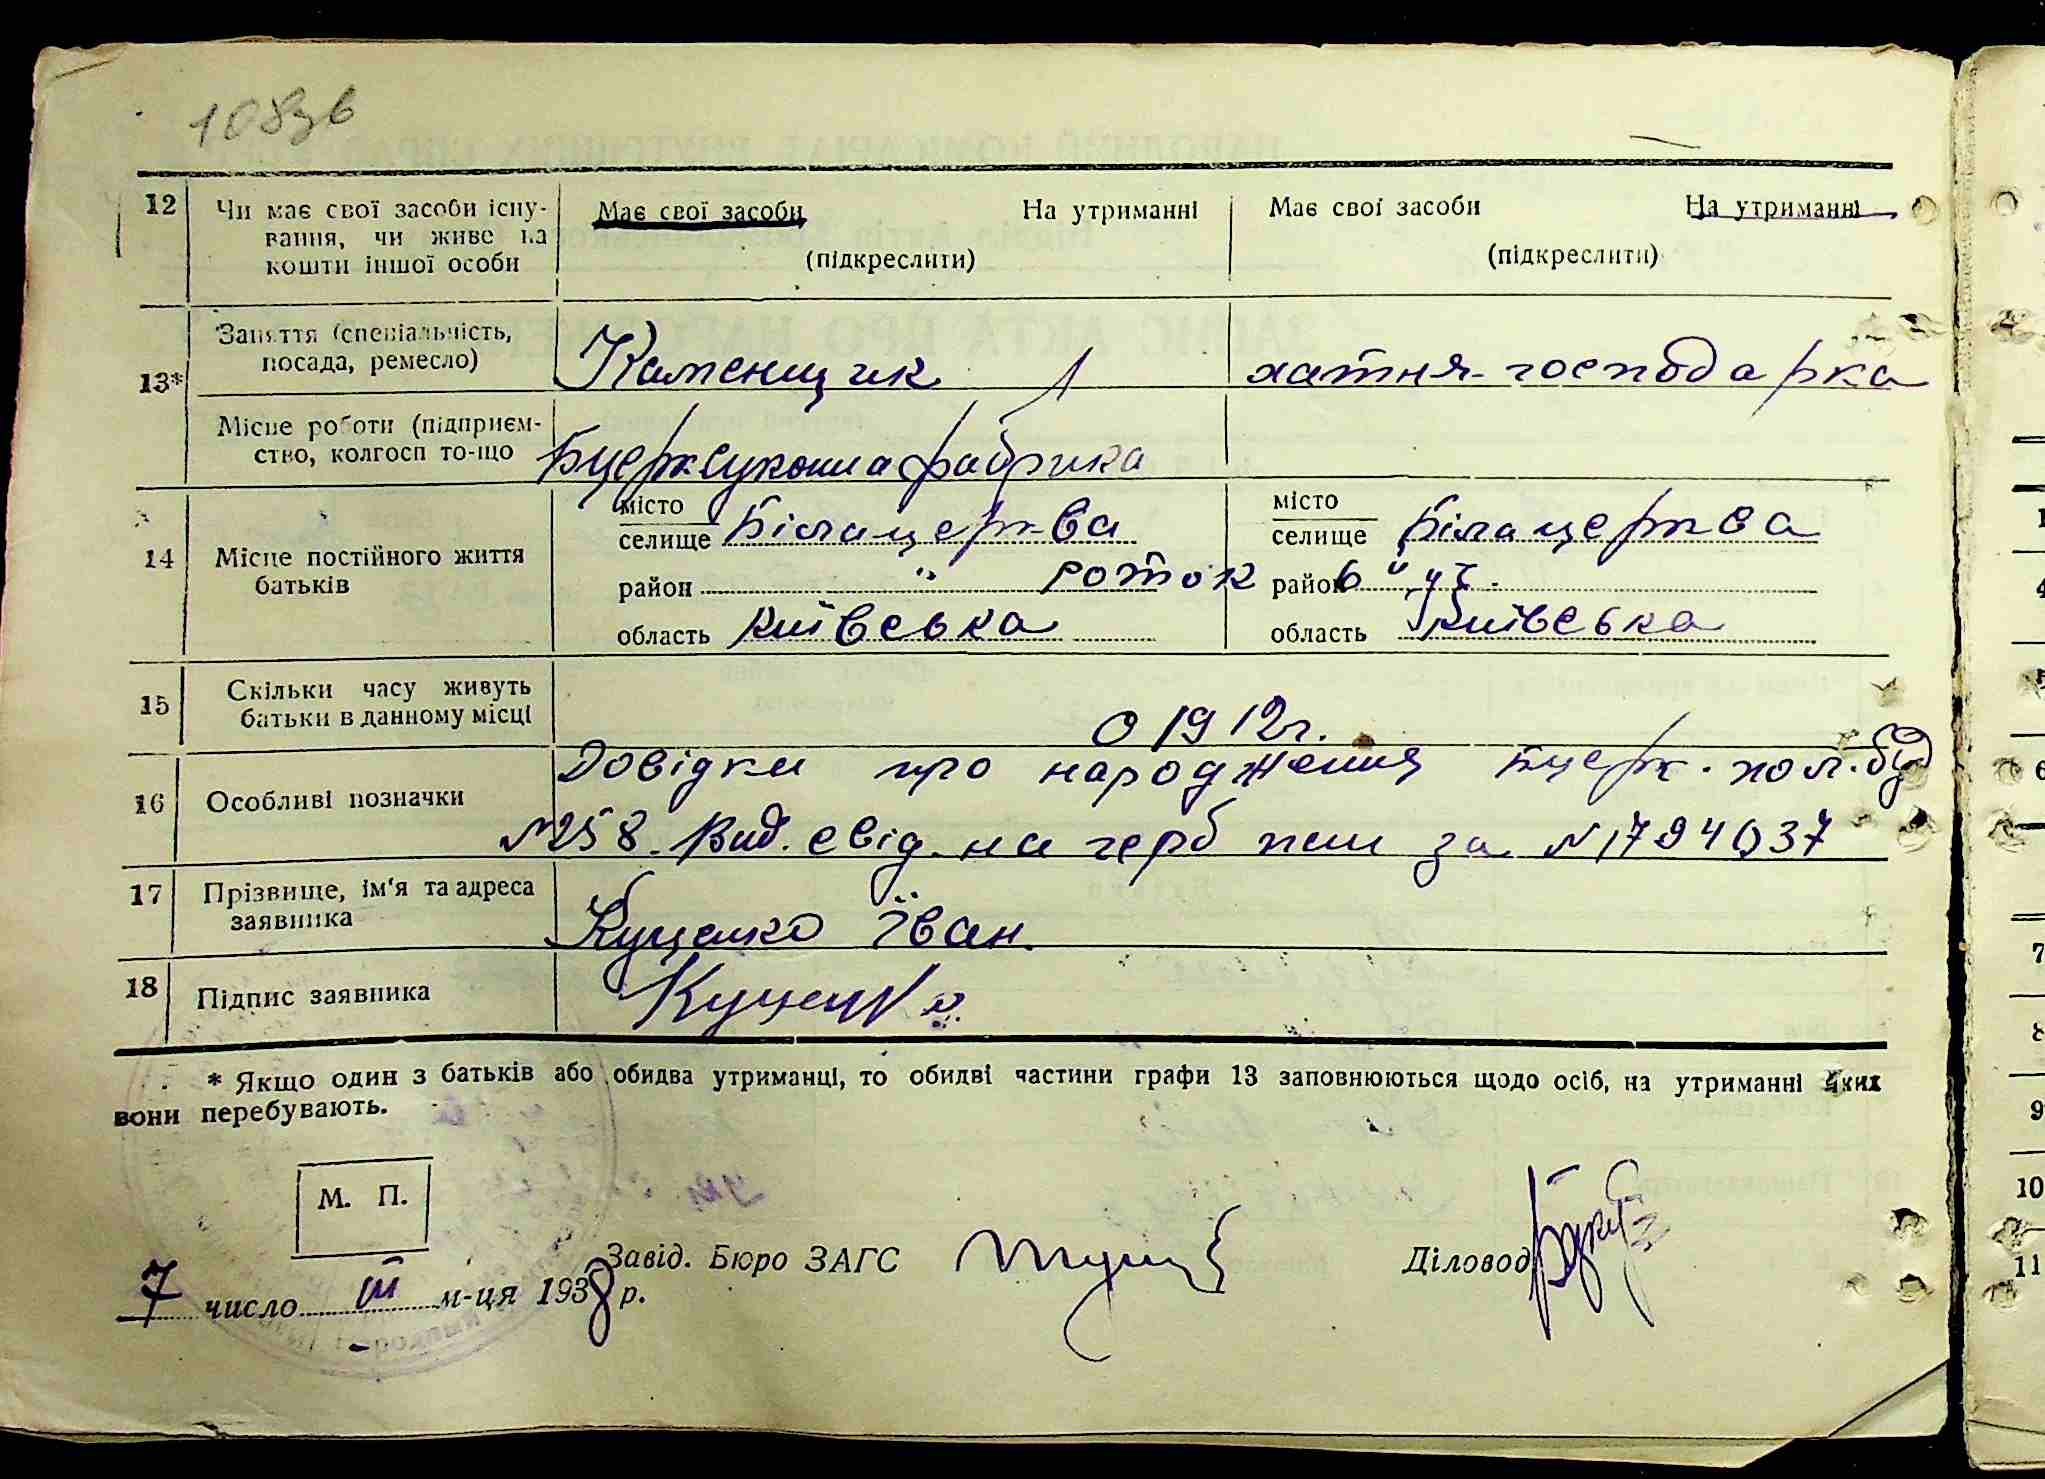 108зв
12 Чи має свої засоби існу- Має свої засоби На утриманні Має свої засоби На утриманні
вання, чи живе на
кошти іншої особи (підкреслити) (підкреслити)
13* Заняття (спеціальність,
посада, ремесло) Каменщик хатня-господарка
Місце роботи (підприєм-
ство, колгосп то-що Бцерк сукона фабрика
14 Місце постійного життя
батьків
місто
селище Біла церква
район " роток
область київська
місто
селище Біла церква
район 6
область Київська
15 Скільки часу живуть
батьки в данному місці с 1912г.
16 Особливі позначки Довідки про народження бцерк. пол. буд
№258. Вид. свід. на герб пап за №1794037
17 Прізвище, ім'я та адреса
заявника Куценко Їван
18 Підпис заявника Куценко
* Якщо один з батьків або обидва утриманці, то обидві частини графи 13 заповнюються щодо осіб, на утриманні яких
вони перебувають.
М. П.
Завід. Бюро ЗАГС Діловод
7 число III м-ця 1938 р.
1
4
5
6
7
8
9
10
11